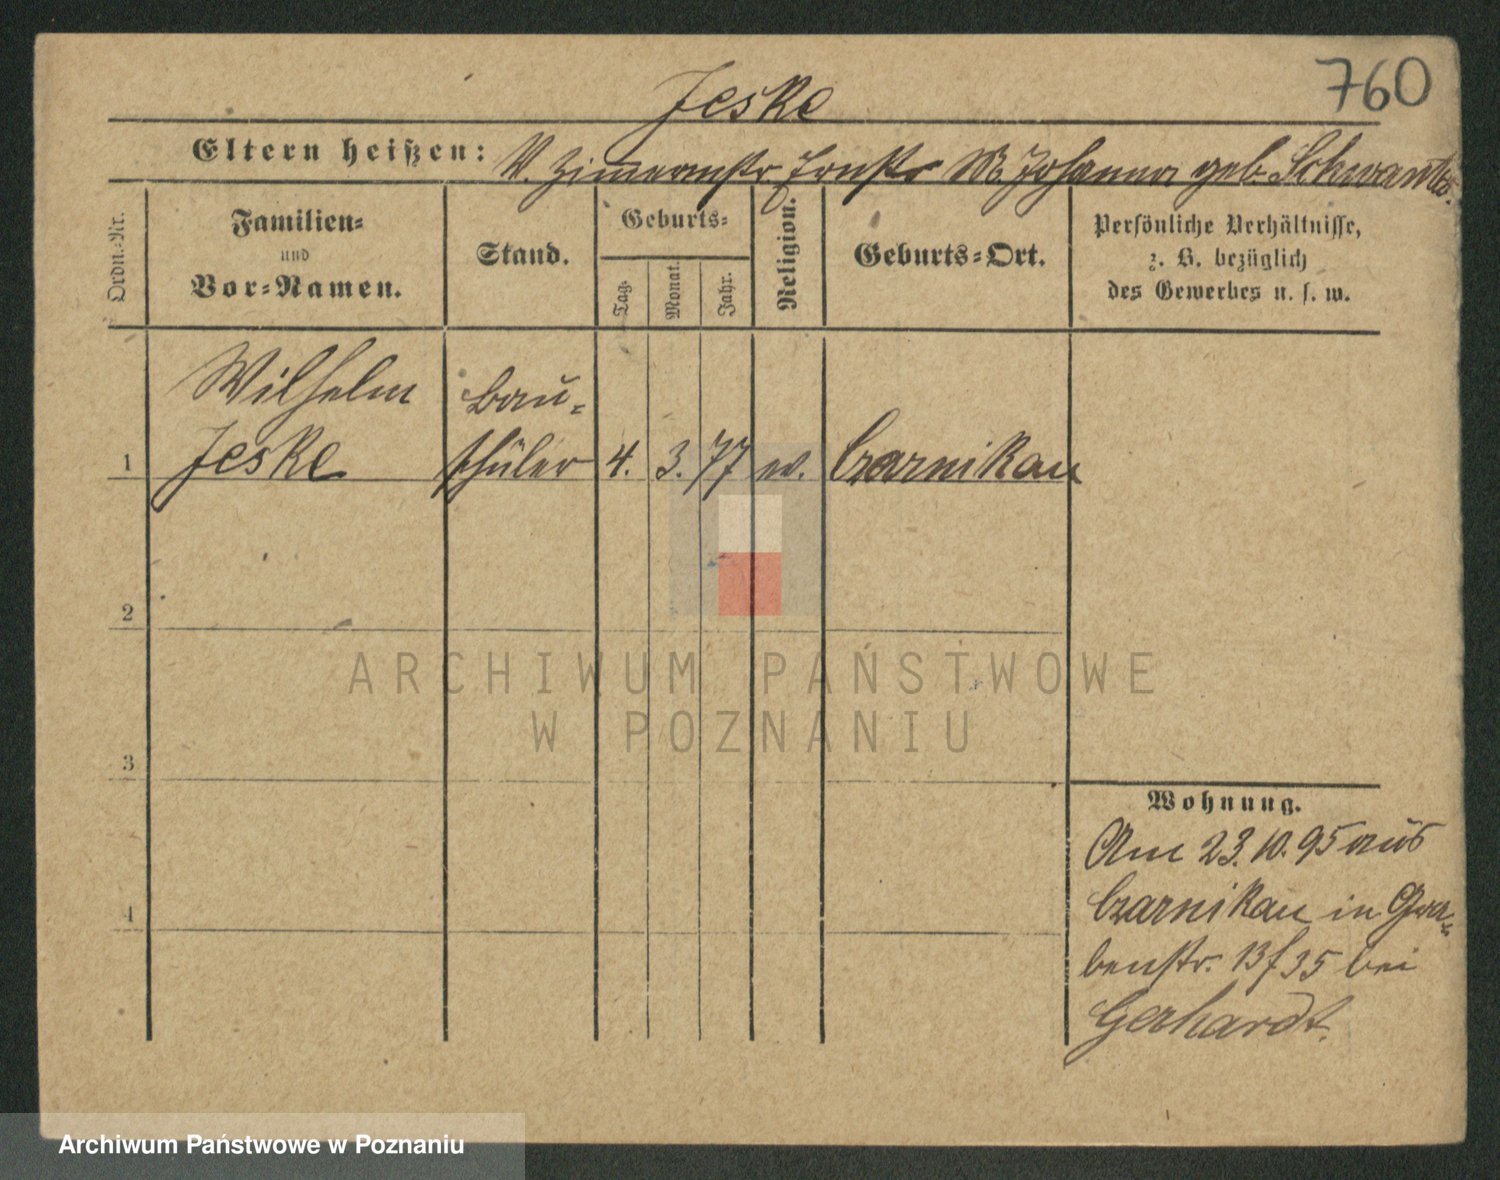 760
Jeske
Eltern heißen: V. Zimermstr. Ernst M. Johanna geb. Schwantes.
Ordn.-Nr.
Familien-
und
Vor-Namen.
Stand.
Geburts-
Tag.
Monat.
Jahr.
Religion.
Geburts-Ort.
Persönliche Verhältnisse,
z. B. bezüglich
des Gewerbes u. s. w.
Wilhelm Bau-
1 Jeske schüler 4. 3. 77 ev. Czarnikau
2
3
4
Wohnung.
Am 23.10.95 aus
Czarnikau in Gra-
benstr. 13 f 35 bei
Gerhardt.
ARCHIWUM PAŃSTWOWE
W POZNANIU
Archiwum Państwowe w Poznaniu